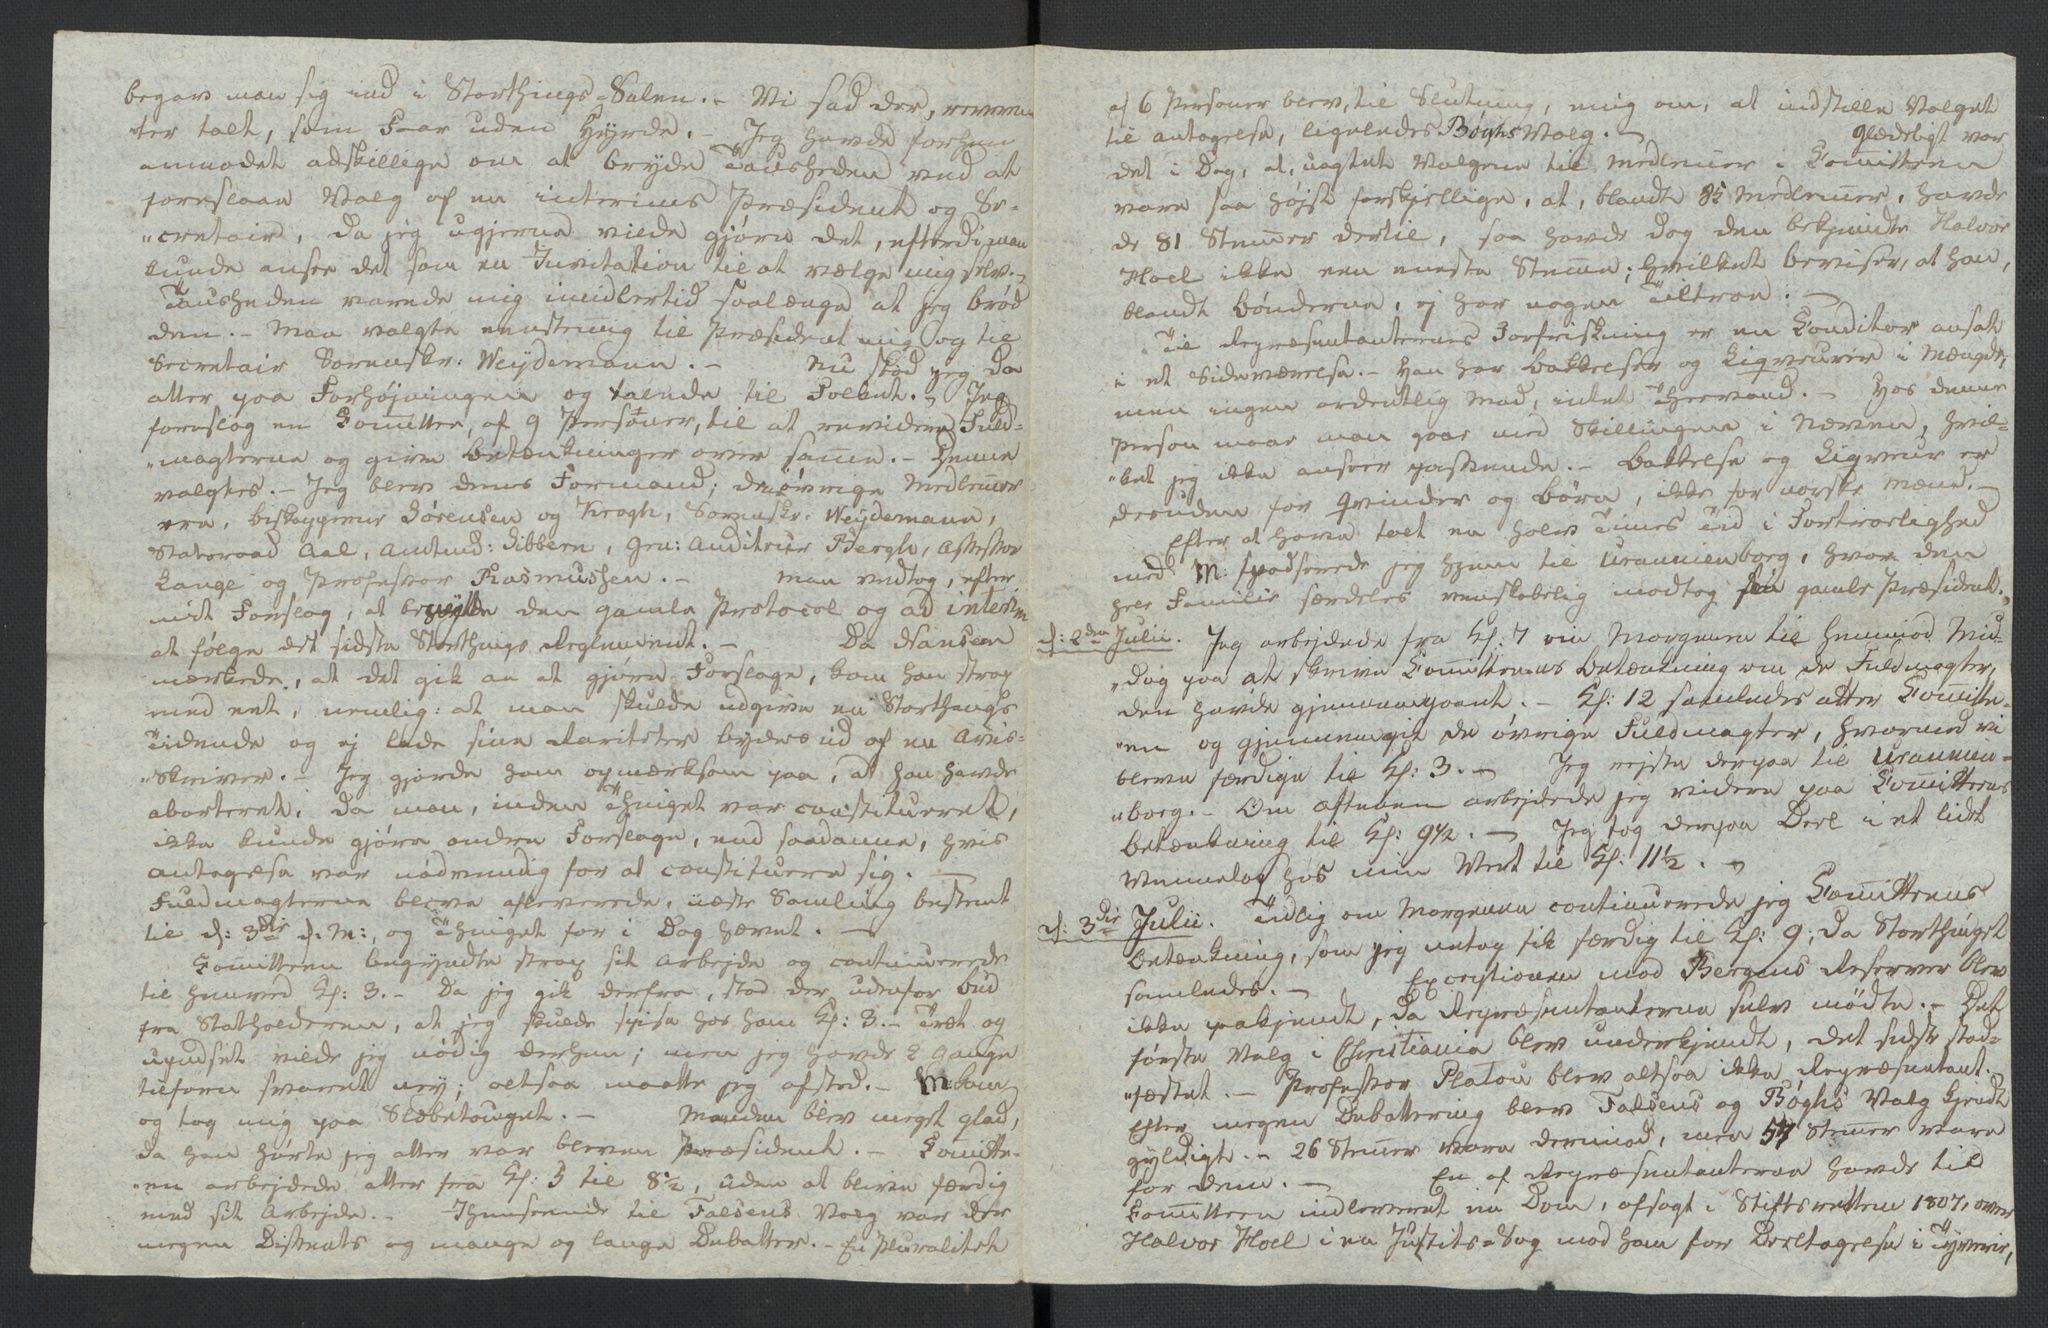 begav man sig ind i Storthings-Salen. – Vi sad der, reveren
ter talt, som Faar uden Hyrde. – Jeg havde forhen
anmodet adskillige om at bryde Tausheden ved at
foreslaae Valg af en interims Præsident og Se-
"cretair, da jeg ugjerne vilde gjøre det, efterdi man
kunde ansee det som en Invitation til at vælge mig selv. –
Tausheden varede mig imidlertid saalænge at jeg brød
den. – Man valgte eenstemig til Præsident mig og til
Secretair Sorenskr: Weydemann. – Nu stod jeg da
atter paa Forhøjningen og talende til Folket. – Jeg
foreslog en Comittee, af 9 Personer, til at revidere Fuld-
"magterne og give Betænkninger over samme. – Denne
valgtes. – Jeg blev dens Formand; de øvrige Medlemer
ere, biskopperne Sørensen og Krogh, Sorenskr. Weydemann,
Statsraad Aal, Amtmd: Sibbern, Gen: Auditeur Bergh, Assessor
Lange og Professor Rasmussen. – Man vedtog, efter
mit Forslag, at benytte den gamle Protocol og ad interim
at følge det sidste Storthings Reglement. – Da Nansen
mærkede, at det gik an at gjøre Forslage, kom han strax
med eet, nemlig: at man skulde udgive en Storthings
Tidende og ej lade sine Rariteter bydes ud af en Avis-
"skriver. – Jeg gjorde ham opmærksom paa, at han havde
aborteret, da man, inden Thinget var constitueret,
ikke kunde gjøre andre Forslage, end saadanne, hvis
antagelse var nødvendig for at constituere sig. –
Fuldmagterne bleve afleverede, næste Samling bestemt
til d: 3die d: M:, og Thinget for i Dag hævet. –
Comitteen begyndte strax sit Arbejde og continuerede
til henved Kl: 3. – Da jeg gik derfra, stod der udenfor Bud
fra Statholderen, at jeg skulde spise hos ham Kl: 3. – Træt og
upudset vilde jeg nødig derhen; men jeg havde 2 Gange
tilforn svaret nej; altsaa maatte jeg afsted. – M: kom
og tog mig paa Slæbetouget. – Manden blev meget glad,
da han hørte jeg atter var bleven Præsident. – Comitte-
"en arbejdede atter fra Kl: 5 til 8½, uden at blive færdig
med sit Arbejde. – Ihenseende til Falsens Valg var der
megen Disseents og mange og lange Debatter. – En Pluralitet
af 6 Personer blev, til Slutning, enig om, at indstille Valget
til antagelse, ligeledes Bøghs Valg. – Glædeligt var
det i Dag, at, uagtet Valgene til Medlemer i Comitteen
vare saa højst forskjellige, at, blandt 85 Medlemer, havde
de 81 Stemer dertil, saa havde dog den bekjendte Halvor
Hoel ikke een eneste Steme; hvilket beviser, at han,
blandt Bønderne, ej har nogen Tiltroe. –
Til Repræsentanternes Forfriskning er en Conditor ansat
i et Sideværelse. – Han har Bakkelser og Liqveurer i Mængde,
men ingen ordentlig Mad, intet Theevand. – Hos denne
Person maae man gaae med Skillingene i Næven, hvil-
"ket jeg ikke anseer passende. – Bakkelse og Liqveur er
desuden for Qvinder og Børn, ikke for norske Mænd. –
Efter at have talt en halv Times Tid i Fortroelighed
med M: spadserede jeg hjem til Uranienborg, hvor den
hele Familie særdeles venskabelig modtog sin gamle Præsident. –
d: 2den Julii. Jeg arbejdede fra Kl: 7 om Morgenen til henimod Mid-
"dag paa at skrive Comitteens Betænkning om de Fuldmagter,
den havde gjennemgaaet. – Kl: 12 samledes atter Comitte-
"en og gjennemgik de øvrige Fuldmagter, hvormed vi
bleve færdige til Kl: 3. – Jeg rejste derpaa til Uranien-
"borg. – Om Aftenen arbejdede jeg videre paa Comitteens
Betænkning til Kl: 9½. – Jeg tog derpaa Deel i et lidet
Vennelag hos min Vert til Kl: 11½. –
d: 3die Julii. Tidlig om Morgenen continuerede jeg Comitteens
Betænkning, som jeg netop fik færdig til Kl: 9, da Storthinget
samledes. – Exceptionen mod Bergens Reserver blev
ikke paakjendt, da Repræsentanterne selv mødte. – Det
første Valg i Christiania blev underkjendt, det sidste stad-
"fæstet. – Professor Platou blev altsaa ikke Repræsentant. –
Efter megen Debattering blev Falsens og Bøghs Valg kjendt
gyldigt. – 26 Stemer vare derimod, men 57 Stemer vare
for dem. – En af Repræsentanterne havde til
Comitteen indleveret en Dom, afsagt i Stiftsretten 1807, over
Halvor Hoel i en Justits-Sag mod ham for Deeltagelse i Tyverie,